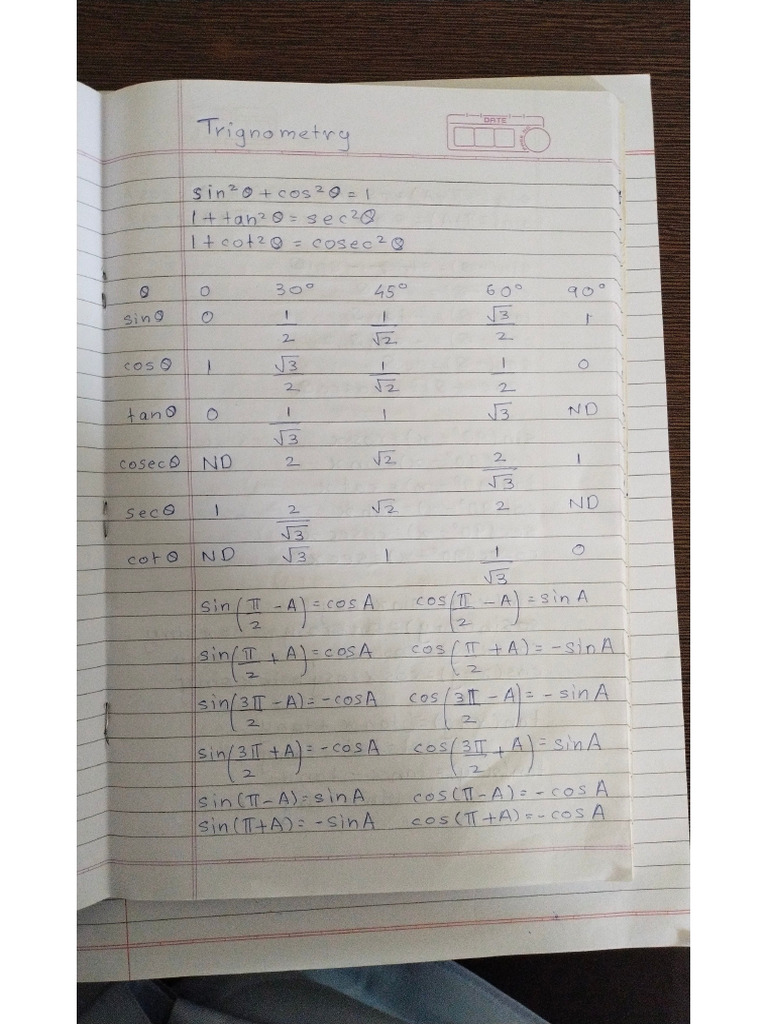 Trignometry
DATE
sin²θ + cos²θ = 1
1 + tan²θ = sec²θ
1 + cot²θ = cosec²θ
θ 0 30° 45° 60° 90°
sinθ 0 1/2 1/√2 √3/2 1
cosθ 1 √3/2 1/√2 1/2 0
tanθ 0 1/√3 1 √3 ND
cosecθ ND 2 √2 2/√3 1
secθ 1 2/√3 √2 2 ND
cotθ ND √3 1 1/√3 0
sin(π/2 - A) = cosA cos(π/2 - A) = sinA
sin(π/2 + A) = cosA cos(π/2 + A) = -sinA
sin(3π/2 - A) = -cosA cos(3π/2 - A) = -sinA
sin(3π/2 + A) = -cosA cos(3π/2 + A) = sinA
sin(π - A) = sinA cos(π - A) = -cosA
sin(π + A) = -sinA cos(π + A) = -cosA